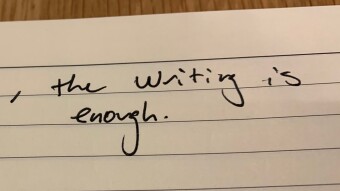 , the writing is
enough.